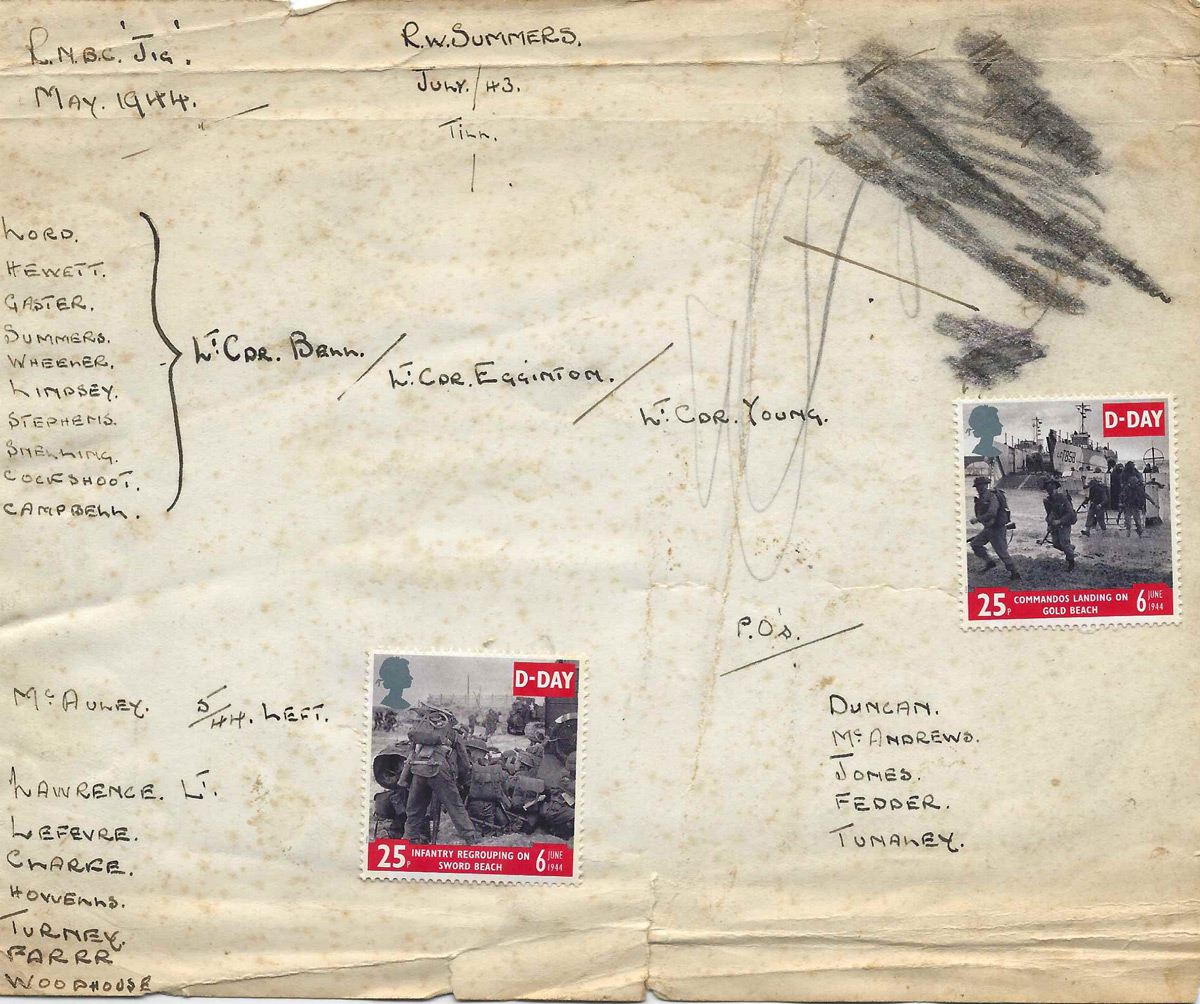 R.N.B.C. 'Jig'.
May. 1944.
R.W. Summers.
July./43.
Till.
Lord.
Hewett.
Gaster.
Summers.
Wheeler.
Lindsey.
Stephens.
Snelling.
Cockshoot.
Campbell.
Lt. Cdr. Bell.
Lt. Cdr. Egginton.
Lt. Cdr. Young.
D-DAY
LCT 858
25P COMMANDOS LANDING ON GOLD BEACH 6 JUNE 1944
P.O's.
Duncan.
McAndrews.
Jones.
Fedder.
Tunaley.
McAuley. 5/44. Left.
D-DAY
25P INFANTRY REGROUPING ON SWORD BEACH 6 JUNE 1944
Lawrence. Lt.
Lefevre.
Clarke.
Howells.
Turney.
Farrr
Woodhouse